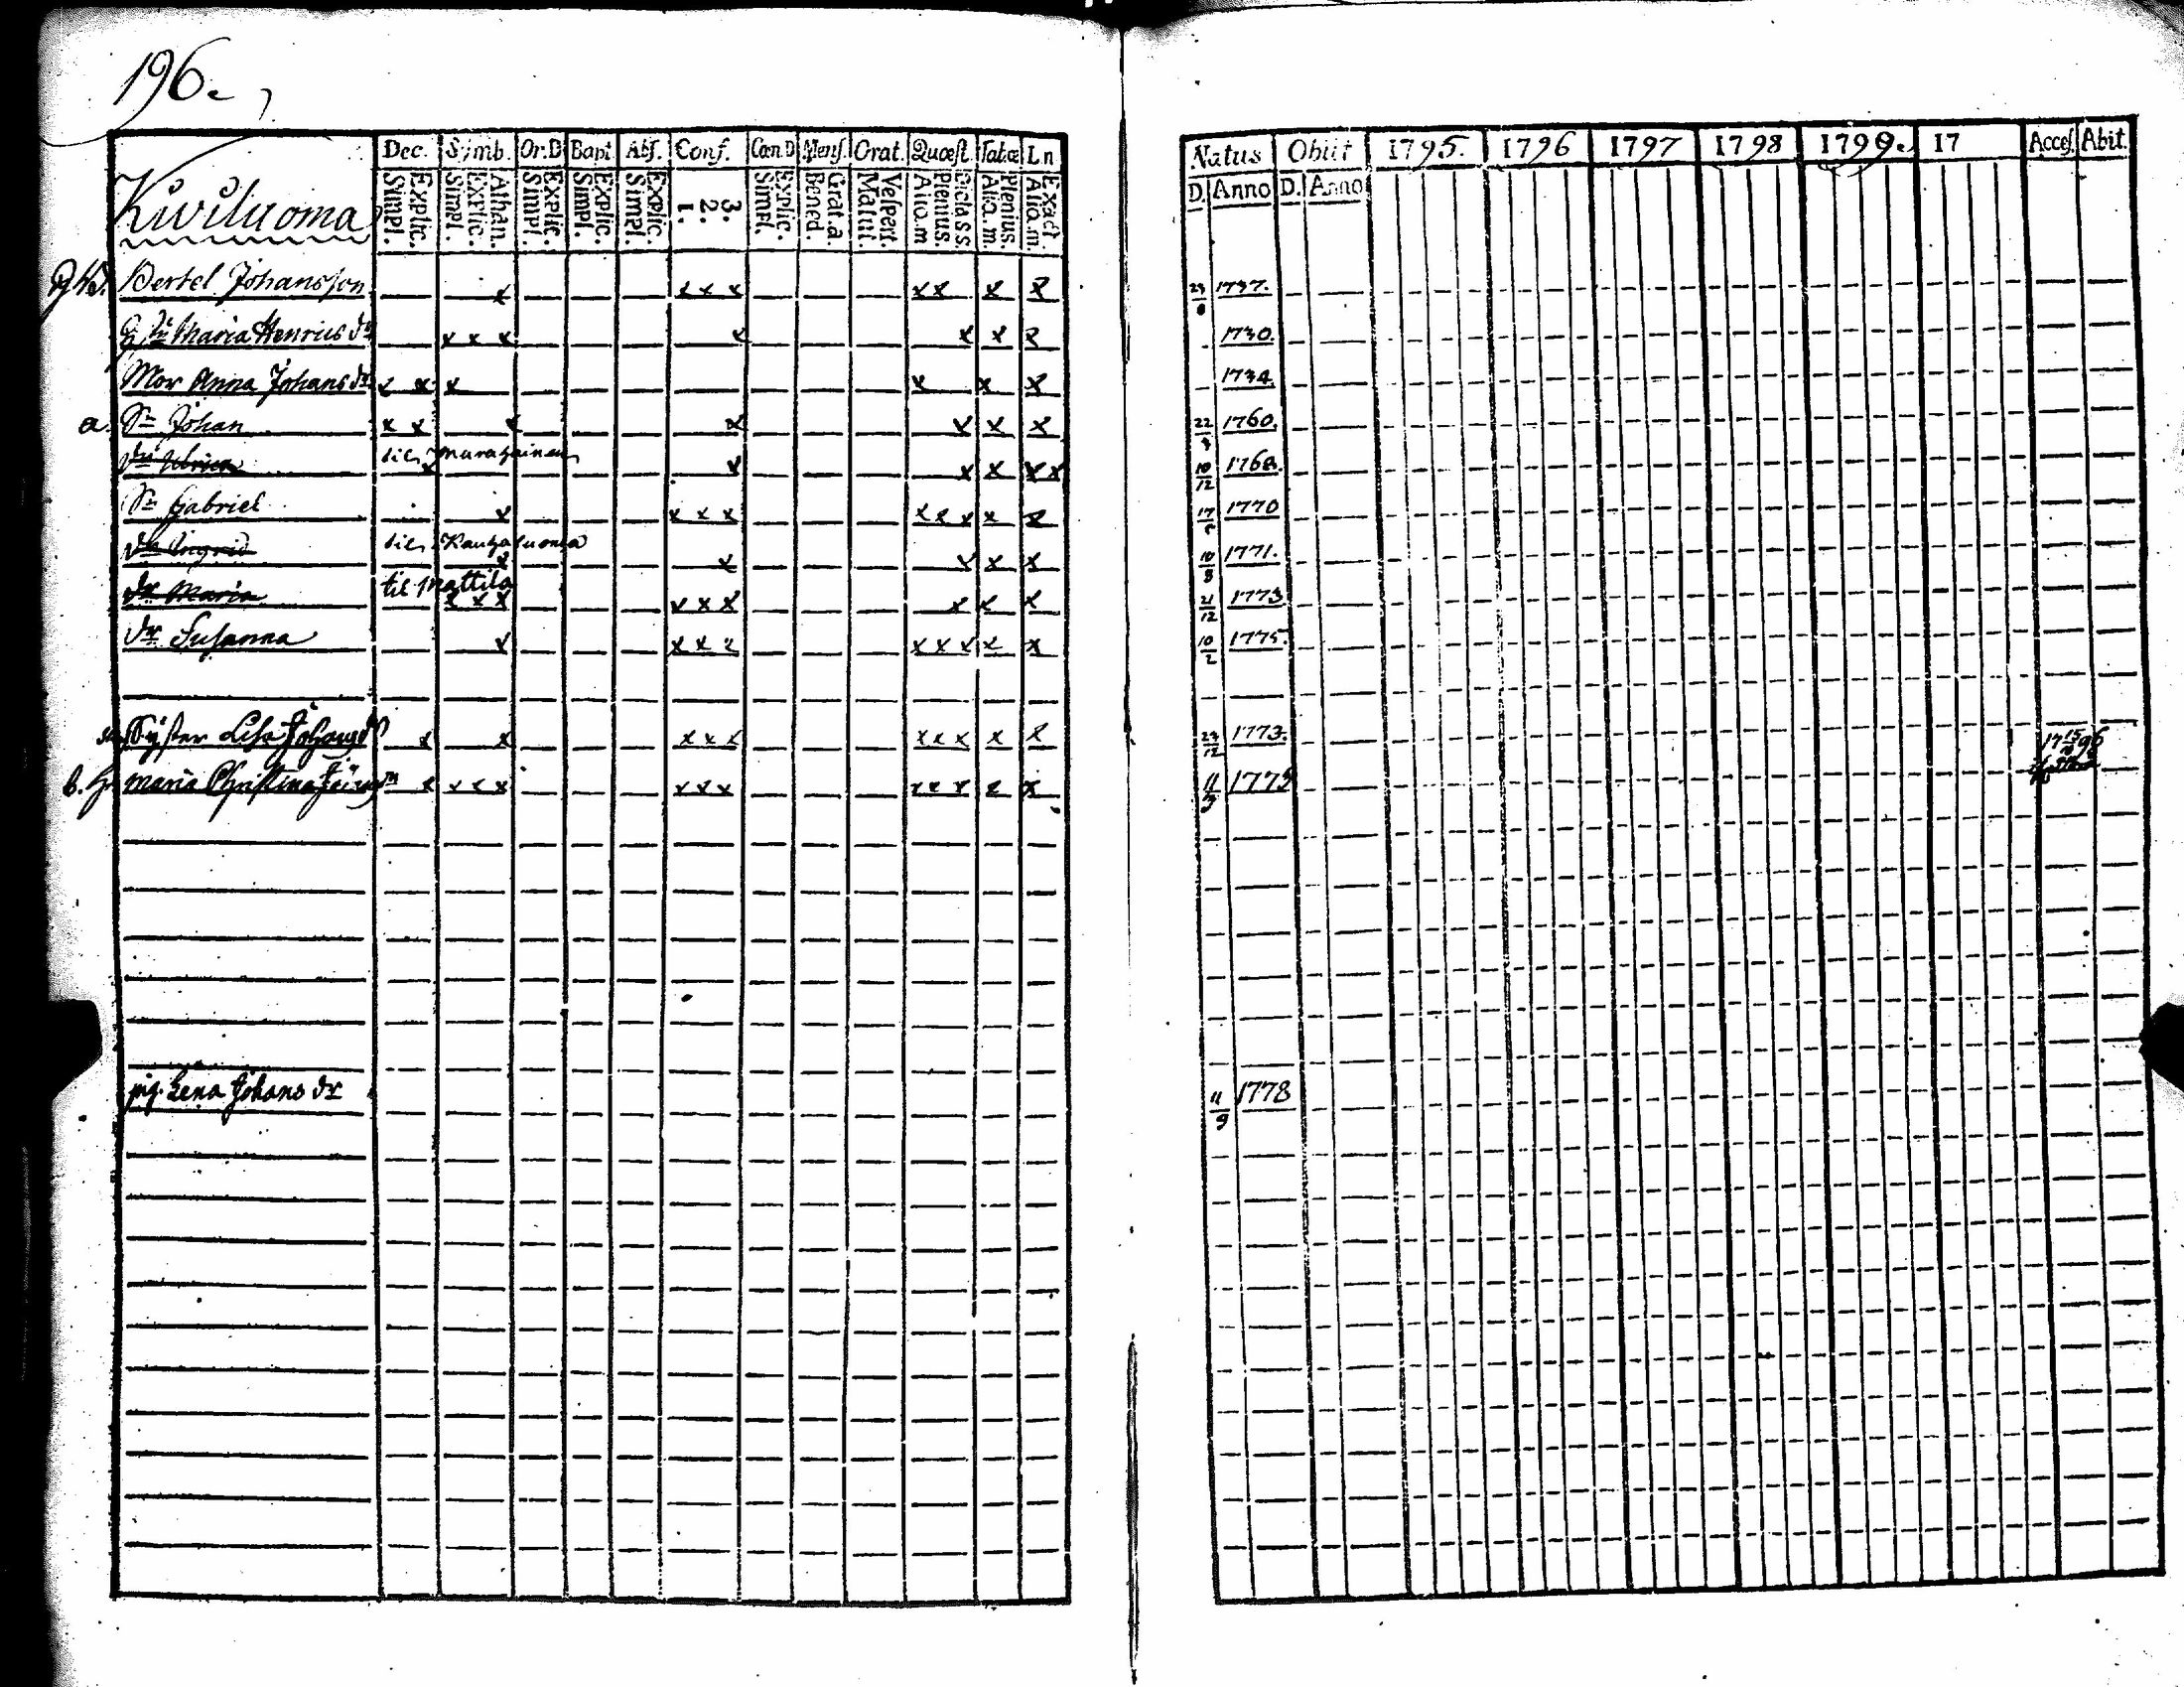 196.
Dec. Simb. Or.D Bapt. Abs. Conf. Cœn.D Mens. Orat. Quæst. Tab.œ Ln
Kiviluoma
Explic. Simpl. Athan. Explic. Simpl. Explic. Simpl. Explic. Simpl. Explic. Simpl. 3. 2. 1. Explic. Simpl. Grat.a. Bened. Vespert. Matut. Plenius. Aliq.m Plenius. Aliq.m. Exact. Aliq.m.
Bertel Johansson x x x x x x x x
Maria Henrics dr x x x x x x
Mor Anna Johans dr x x x x x x
a Sn Johan x x x x x x x
dr Ulrica til x x x x x x
Sn Gabriel x x x x x x x x x
dr Ingrid til Kauhaluoma x x x x x
dr Maria til Mattila x x x x x x x x x
dr Susanna x x x x x x x x x
Syster Lisa Johans dr x x x x x x x x x x
b. Maria Christina x x x x x x x x x x x x
pig. Lena Johans dr
Natus Obiit 1795. 1796 1797 1798 1799. 17 Acces. Abit.
D. Anno D. Anno
1737.
1730.
1734.
22 1760.
10/12 1768.
17 1770
10/8 1771.
21/12 1773
10/2 1775.
1773.
11 1775
11/9 1778